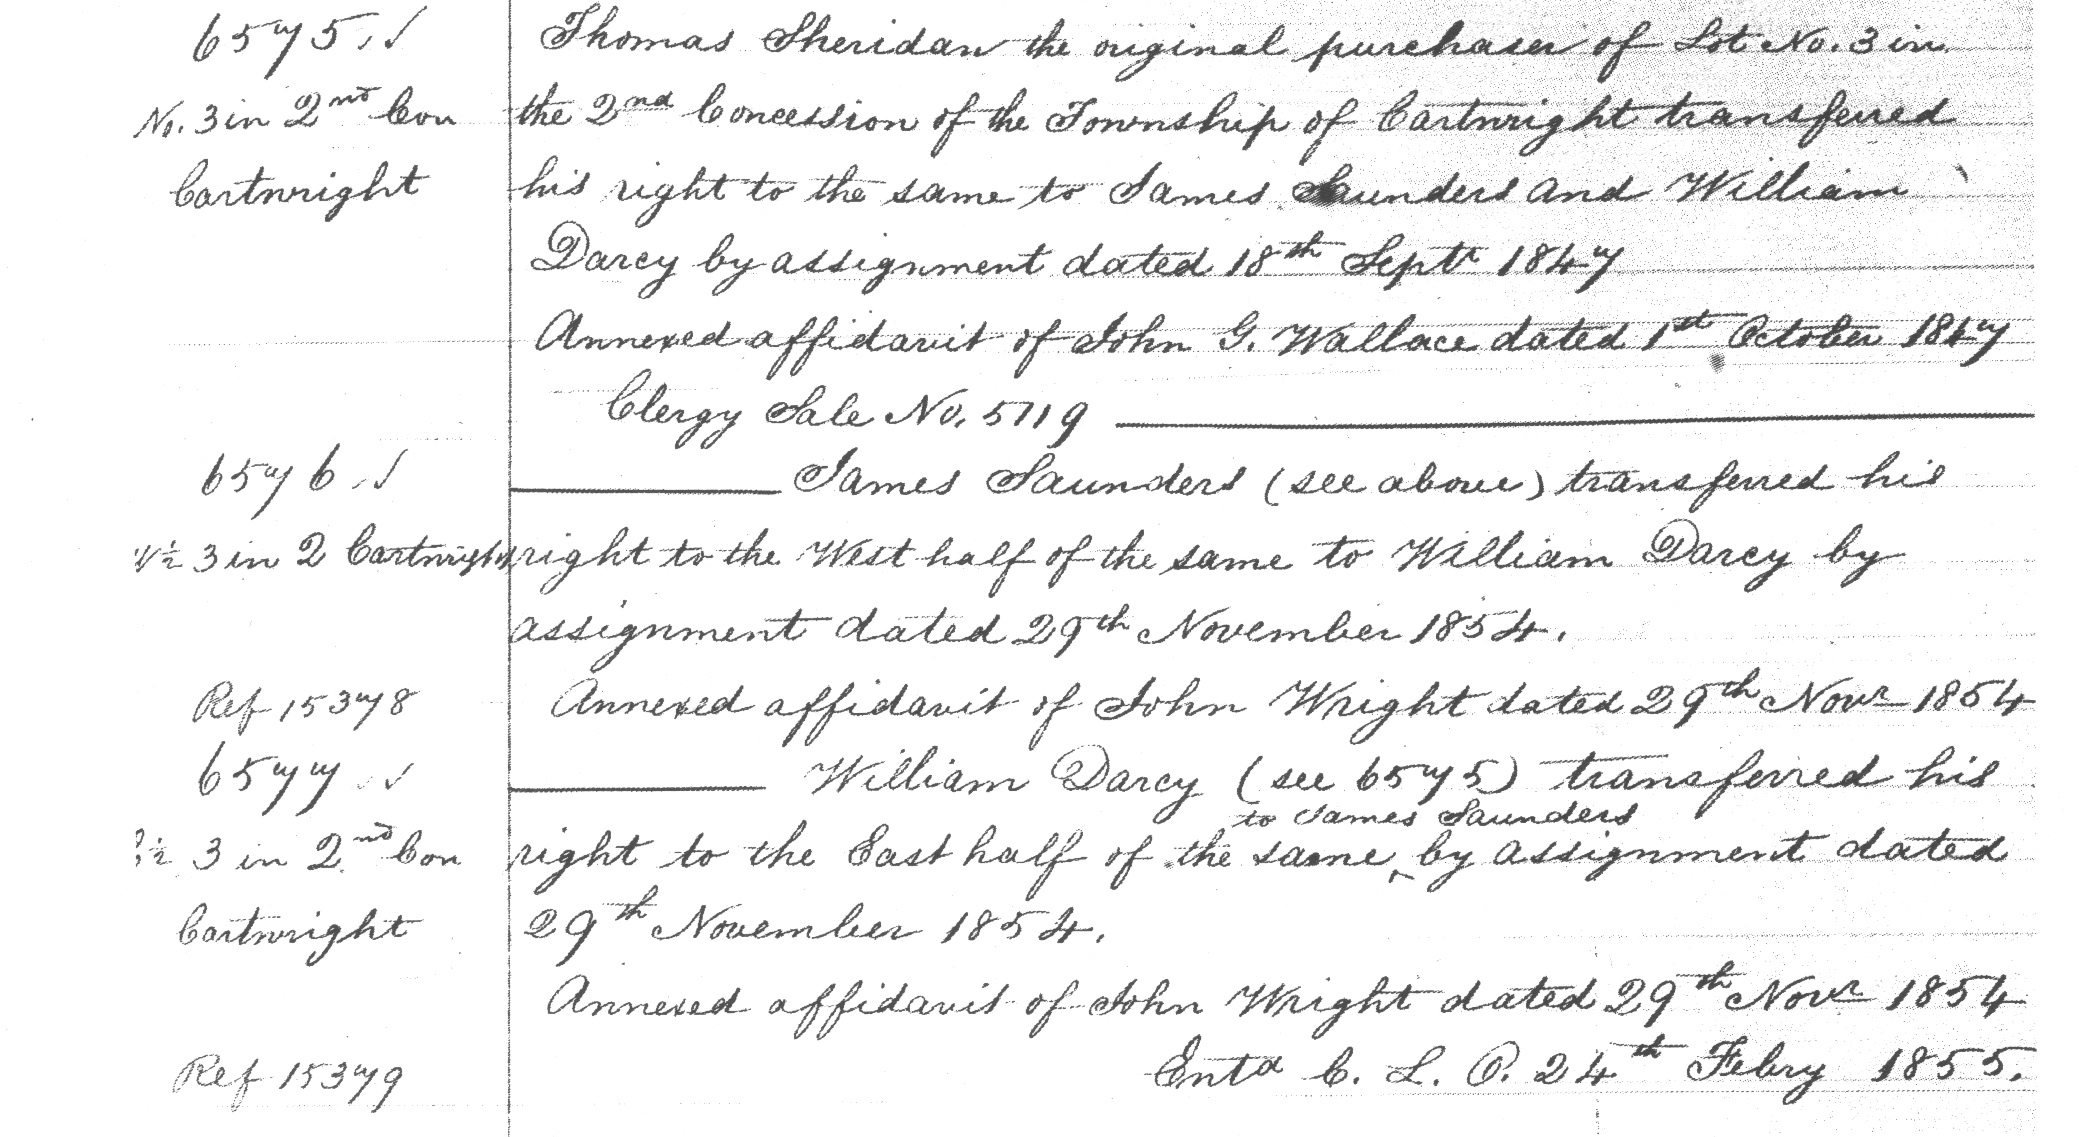 6575 ✓ Thomas Sheridan the original purchaser of Lot No. 3 in
No. 3 in 2nd Con the 2nd Concession of the Township of Cartwright transferred
Cartwright his right to the same to James Saunders and William
Darcy by assignment dated 18th Septr 1847
Annexed affidavit of John G. Wallace dated 1st October 1847
Clergy Sale No. 5719
6576 ✓ James Saunders (see above) transferred his
½ 3 in 2 Cartwright right to the West half of the same to William Darcy by
assignment dated 29th November 1854.
Ref 15378 Annexed affidavit of John Wright dated 29th Novr 1854
6577 ✓ William Darcy (see 6575) transferred his
to James Saunders
½ 3 in 2nd Con right to the East half of the same ‸ by assignment dated
Cartwright 29th November 1854.
Annexed affidavit of John Wright dated 29th Novr 1854
Ref 15379 Entd C. L. O. 24th Febry 1855.